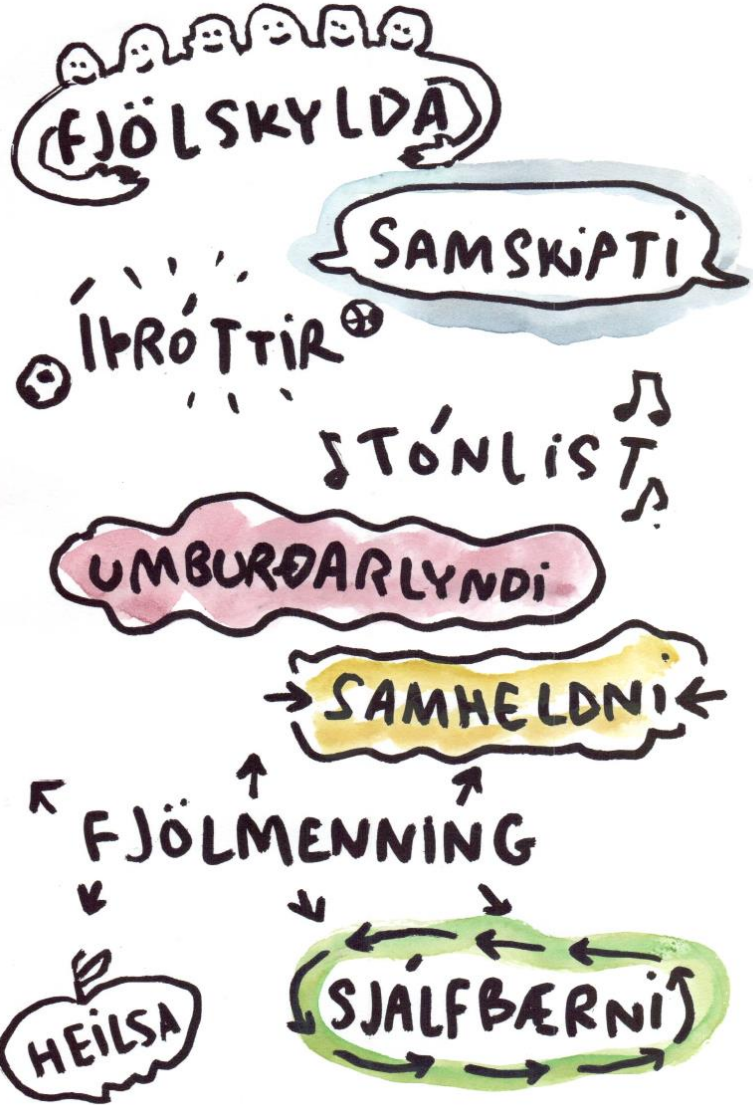 FJÖLSKYLDA
SAMSKiPTi
ÍÞRÓTTiR
TÓNLiST
UMBURÐARLYNDi
SAMHELDNi
FJÖLMENNiNG
HEiLSA
SJÁLFBÆRNi